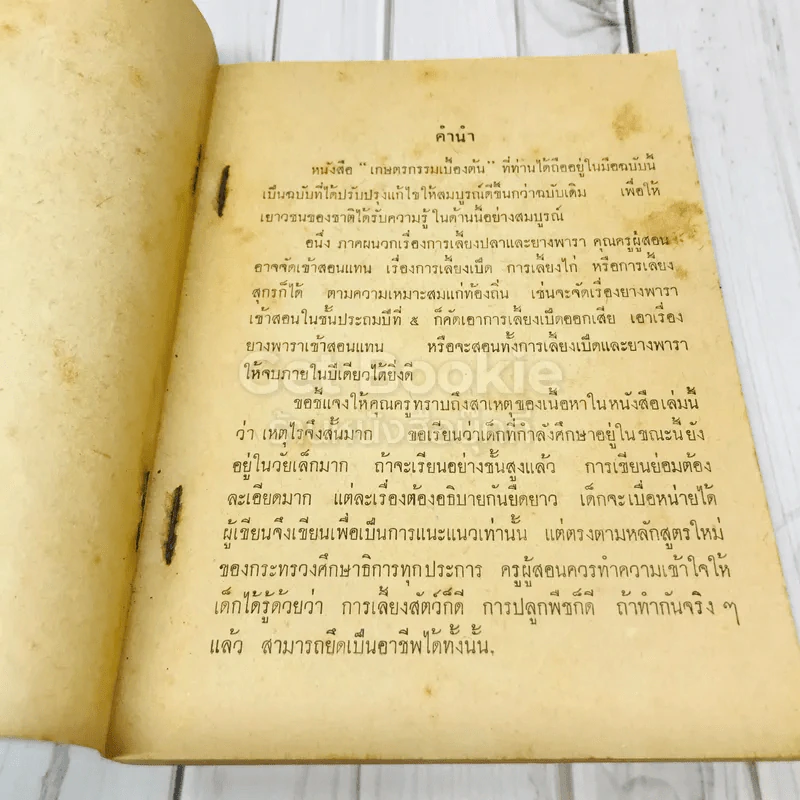 คำนำ
หนังสือ "เกษตรกรรมเบื้องต้น" ที่ท่านได้ถืออยู่ในมือฉบับนี้
เป็นฉบับที่ได้ปรับปรุงแก้ไขให้สมบูรณ์ดีขึ้นกว่าฉบับเดิม เพื่อให้
เยาวชนของชาติได้รับความรู้ในด้านนี้อย่างสมบูรณ์
อนึ่ง ภาคผนวกเรื่องการเลี้ยงปลาและยางพารา คุณครูผู้สอน
อาจจัดเข้าสอนแทน เรื่องการเลี้ยงเป็ด การเลี้ยงไก่ หรือการเลี้ยง
สุกรก็ได้ ตามความเหมาะสมแก่ท้องถิ่น เช่นจะจัดเรื่องยางพารา
เข้าสอนในชั้นประถมปีที่ ๕ ก็คัดเอาการเลี้ยงเป็ดออกเสีย เอาเรื่อง
ยางพาราเข้าสอนแทน หรือจะสอนทั้งการเลี้ยงเป็ดและยางพารา
ให้จบภายในปีเดียวได้ยิ่งดี
ขอชี้แจงให้คุณครูทราบถึงสาเหตุของเนื้อหาในหนังสือเล่มนี้
ว่า เหตุไรจึงสั้นมาก ขอเรียนว่าเด็กที่กำลังศึกษาอยู่ในขณะนี้ยัง
อยู่ในวัยเล็กมาก ถ้าจะเรียนอย่างชั้นสูงแล้ว การเขียนย่อมต้อง
ละเอียดมาก แต่ละเรื่องต้องอธิบายกันยืดยาว เด็กจะเบื่อหน่ายได้
ผู้เขียนจึงเขียนเพื่อเป็นการแนะแนวเท่านั้น แต่ตรงตามหลักสูตรใหม่
ของกระทรวงศึกษาธิการทุกประการ ครูผู้สอนควรทำความเข้าใจให้
เด็กได้รู้ด้วยว่า การเลี้ยงสัตว์ก็ดี การปลูกพืชก็ดี ถ้าทำกันจริง ๆ
แล้ว สามารถยึดเป็นอาชีพได้ทั้งนั้น.